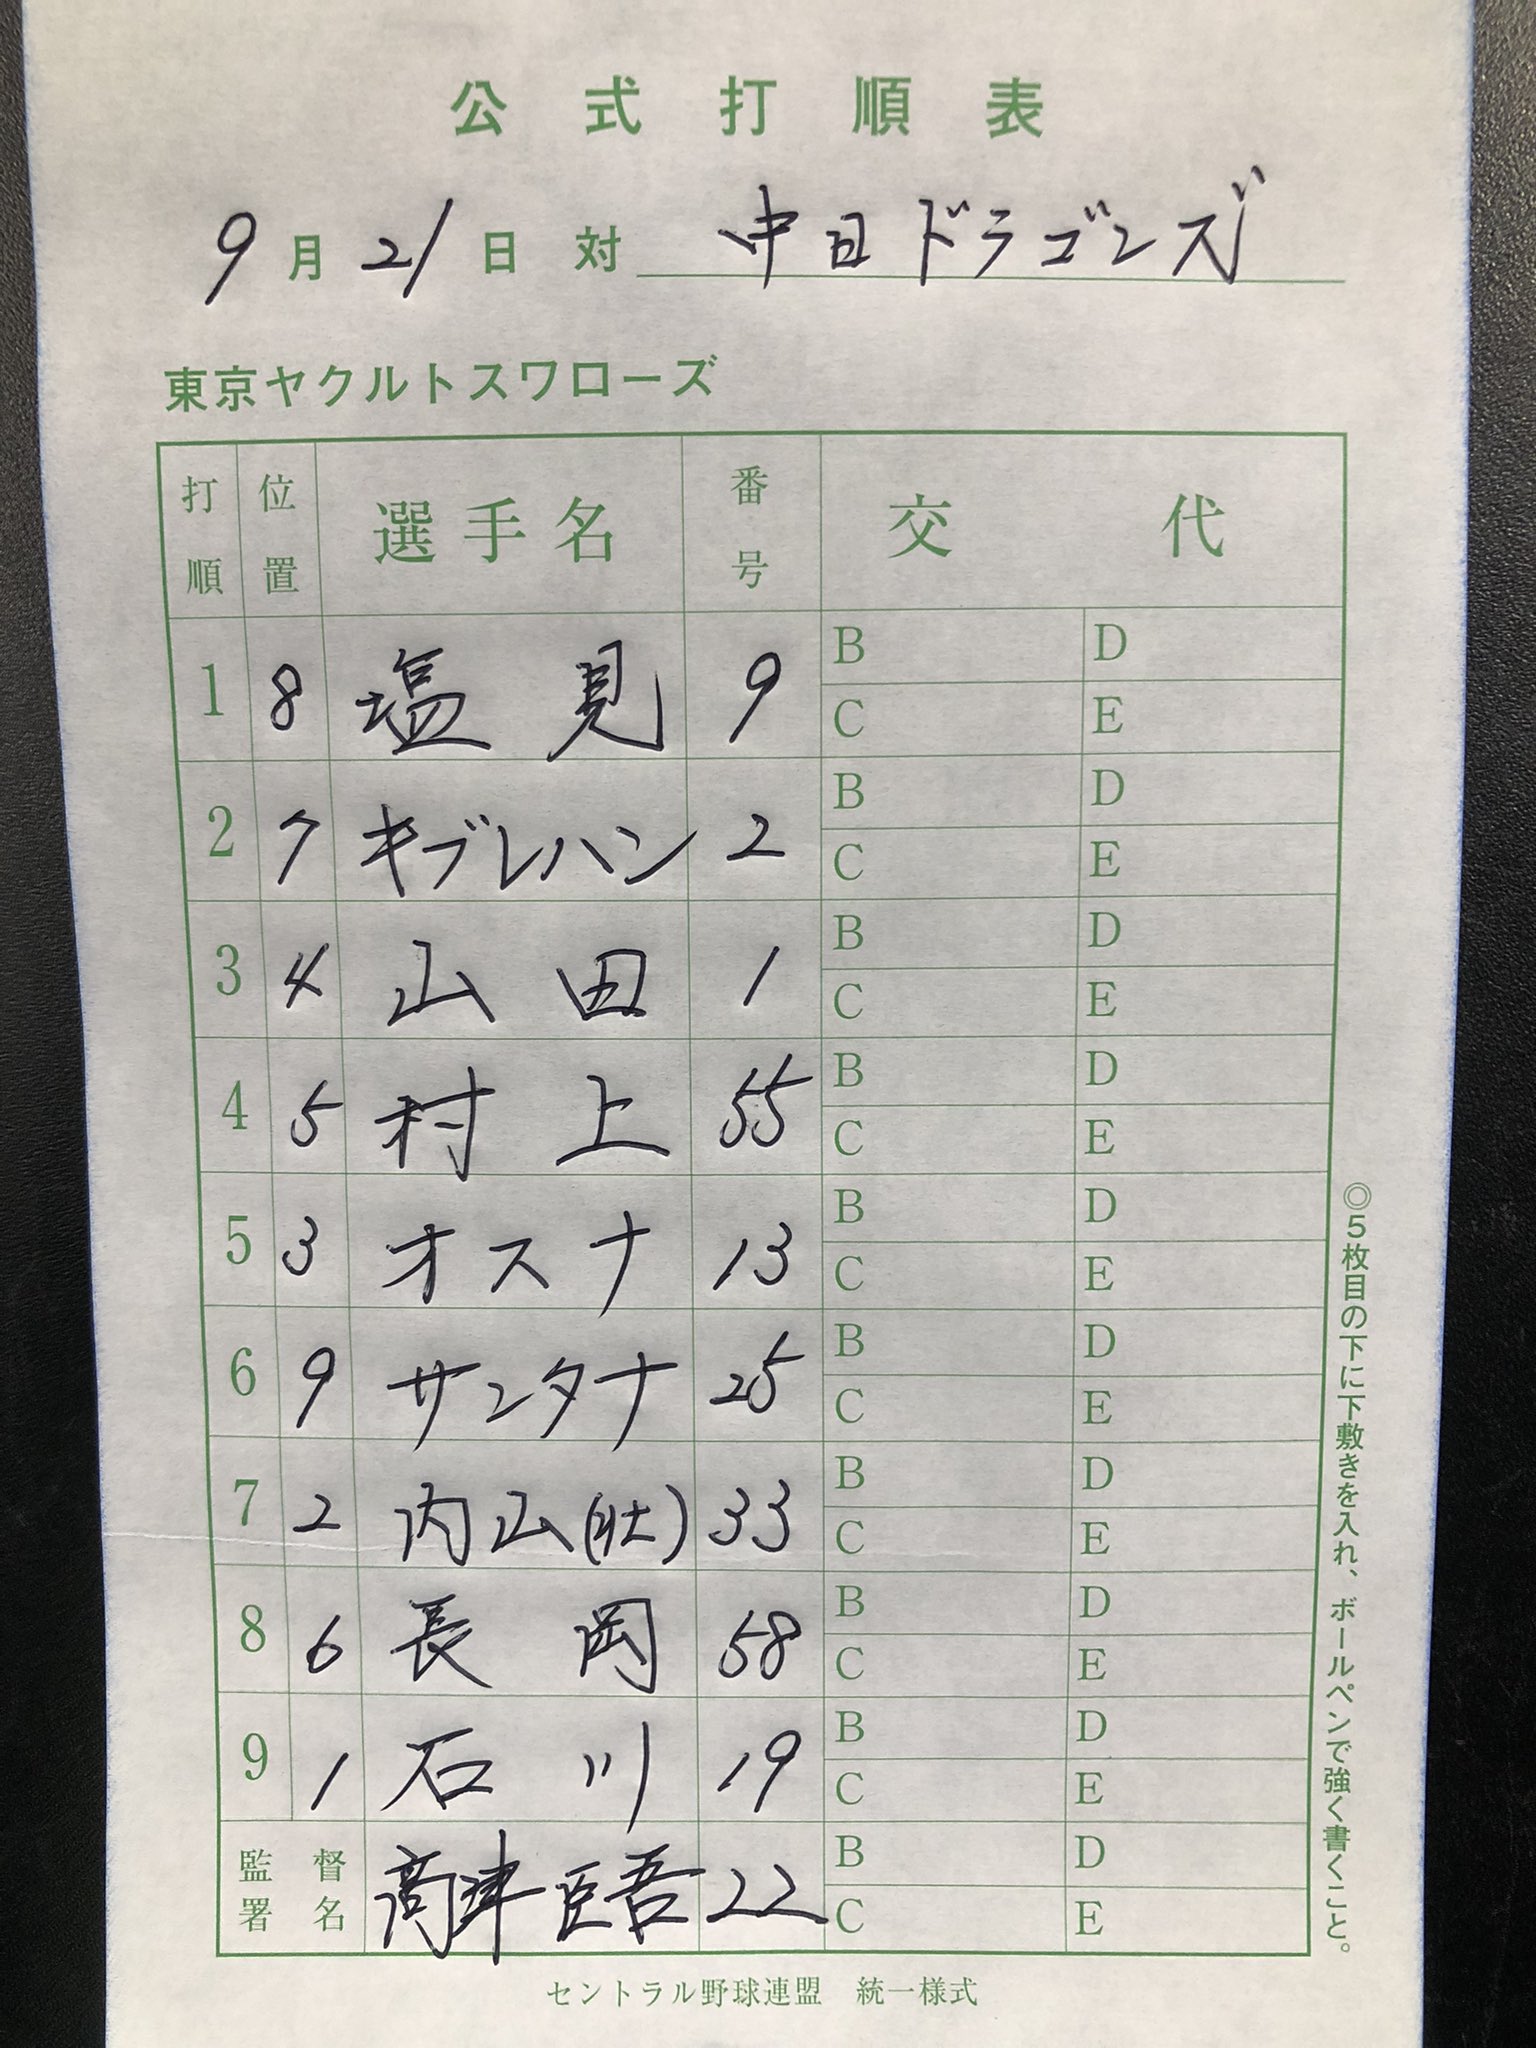 公式打順表
9月21日 対 中日ドラゴンズ
東京ヤクルトスワローズ
打順 位置 選手名 番号 交代
1 8 塩見 9 B D
C E
2 7 キブレハン 2 B D
C E
3 4 山田 1 B D
C E
4 5 村上 55 B D
C E
5 3 オスナ 13 B D
C E
6 9 サンタナ 25 B D
C E
7 2 内山(壮) 33 B D
C E
8 6 長岡 58 B D
C E
9 1 石川 19 B D
C E
監督署名 高津臣吾 22 B D
C E
◎5枚目の下に下敷きを入れ、ボールペンで強く書くこと。
セントラル野球連盟 統一様式